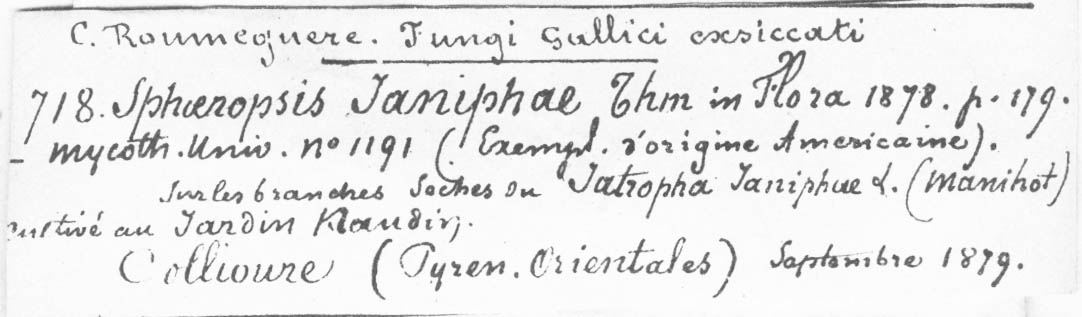 C. Roumeguere. Fungi Gallici exsiccati
718. Sphæropsis Janiphae Thm in Flora 1878. p. 179.
– mycoth. Univ. no 1191 (Exempl. d'origine Americaine).
Sur les branches Seches du Jatropha Janiphae L. (Manihot)
cultivé au Jardin Naudin.
Collioure (Pyren. Orientales) Septembre 1879.